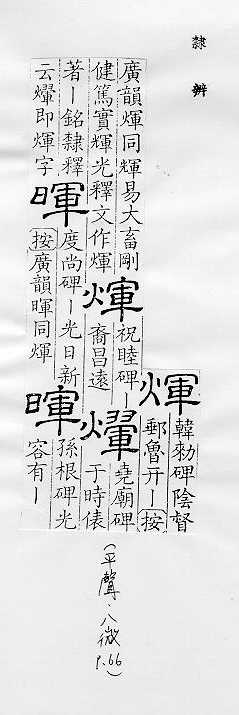 隸辨
煇
韓勑碑陰督
郵魯开ー按
廣韻煇同輝易大畜剛
健篤實輝光釋文作煇
煇
祝睦碑ー
裔昌遠
堯廟碑
于時俵
著ー銘隸釋
云即煇字
暉
度尚碑ー光日新
按廣韻暉同煇
暉
孫根碑光
容有ー
(平聲·八微 P.66)